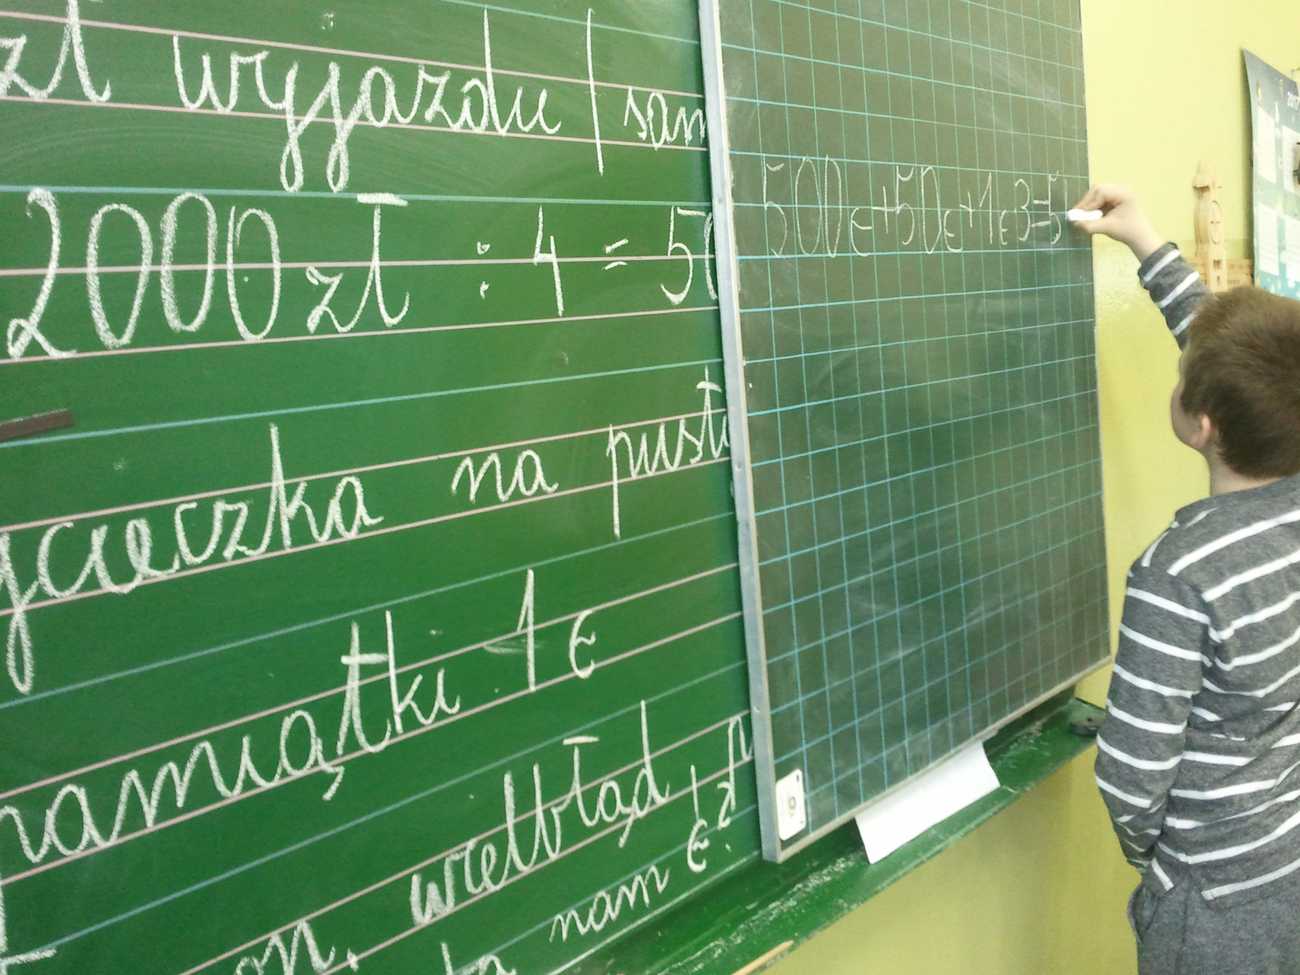 zł wyjazdu | sam
2000 zł : 4 = 50
ycieczka na pust
pamiątki 1 €
wielbłąd
on. nam €!
500€+50€+1€3=5
9